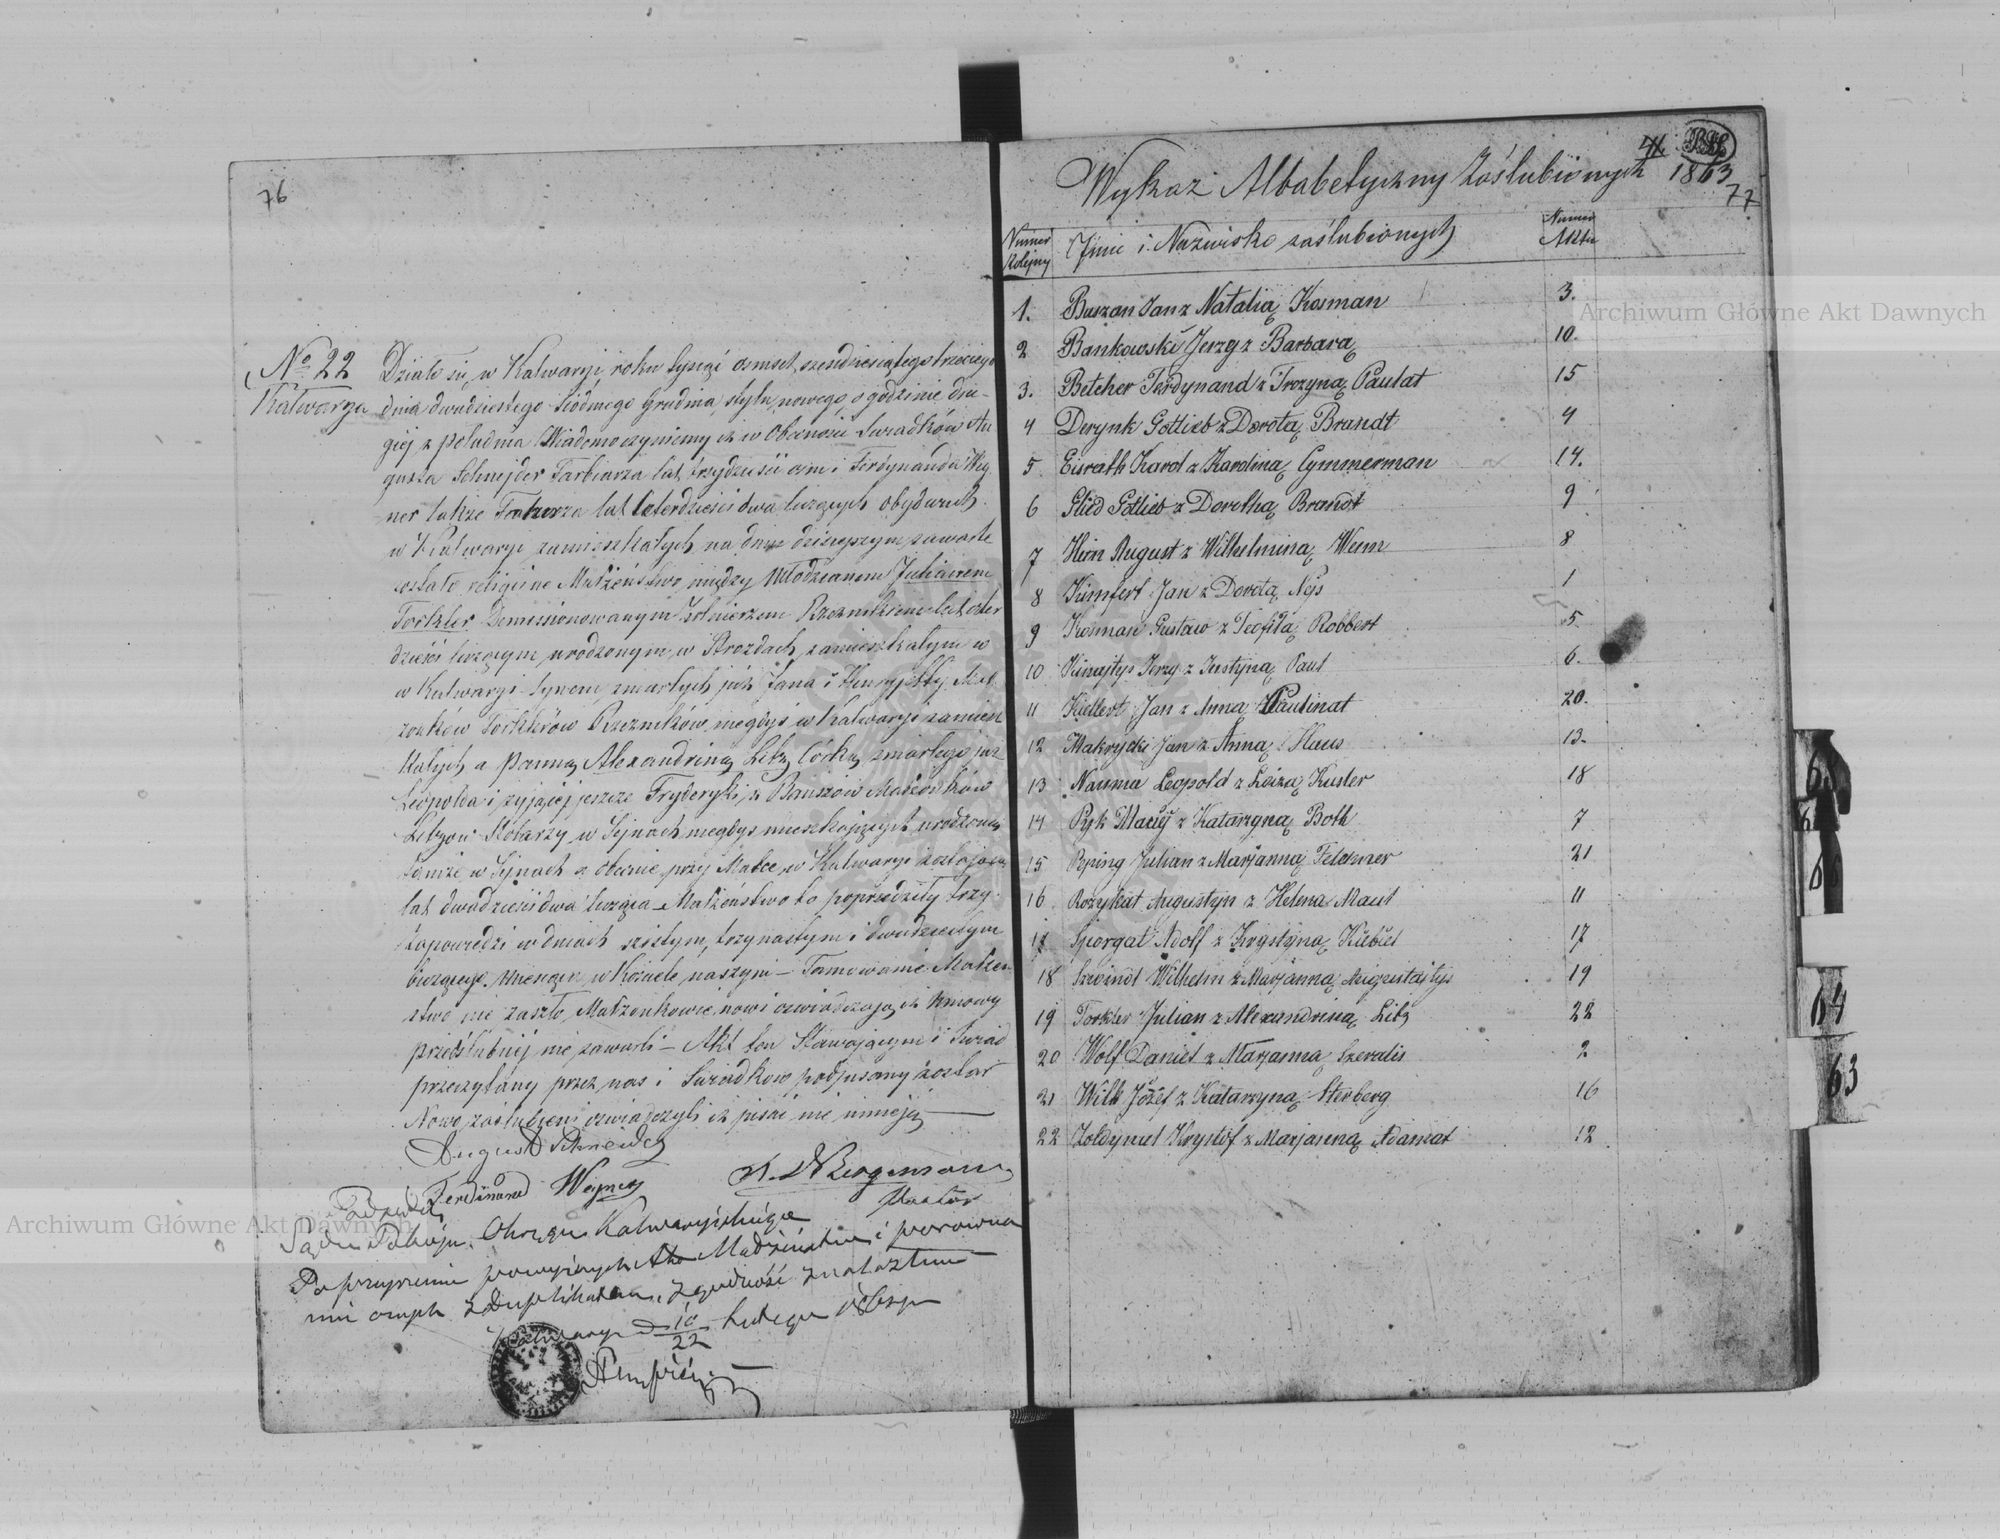 76
No 22
Kalwarya
Działo się w Kalwaryi roku tysiąc osmset sześdziesiątego trzeciego
dnia dwudziestego siódmego Grudnia stylu nowego o godzinie dru-
giej z południa Wiadomo czyniemy iż w Obecności Swiadków Au
gusta Schnejder Farbiarza lat trzydzieści ośm i Ferdynanda Weg
ner także lat czterdzieści dwa liczących obydwuch
w Kalwaryi zamieszkałych na dniu dzisiejszym zawarte
zostało religijne Małżeństwo między Młodzianem Julianem
Torkler Demisionowanym Żołnierzem Rzeznikiem lat czter
dzieści liczącym urodzonym w zamieszkałym w
w Kalwaryi Synem zmarłych już Jana i Henryjetty Mał
żonków Torklerów Rzezników niegdyś w Kalwaryi zamiesz
kałych a Panną Alexandriną Litz Córką zmarłego już
Leopolda i żyjącej jeszcze Fryderyki z Małżonków
Litzow w Sejnach niegdyś mieszkających urodzoną
tamże w Sejnach a obecnie przy Matce w Kalwaryi zostającą
lat dwadzieścia dwa licząca – Małżeństwo to poprzedziły trzy
zapowiedzi w dniach szóstym, trzynastym i dwudziestym
bieżącego Miesiąca w Kościele naszym – Tamowanie Małżeń
stwa nie zaszło, Małżonkowie nowi oswiadczają iż Umowy
przedślubnej nie zawarli – Akt ten Stawającym i Swiad
przeczytany przez nas i Swiadków podpisany został
Nowo zaslubieni oswiadczyli iż pisać nie umieją
August Schneider
Ferdinand Wegner
Pastor
Podsędek
Sądu Pokoju Okręgu Kalwaryjskiego
Po przejrzeniu powyższych Akt Małżeństw i porówna
niu onych z Duplikatem, zgodność znalazłem
Kalwarya d 10/22 Lutego
41.
Wykaz Albabetyczny Zaślubionych 1863
77
Numer Kolejny
Jmie i Nazwisko zaślubionych
Numer Aktu
1. Buszan Jan z Natalią Kosman 3.
2 Bankowski Jerzy z Barbarą 10.
3. Betcher Ferdynand z Trozyną Paulat 15
4 Derynk Gotlieb z Dorotą Brandt 4
5 Eisrath Karol z Karoliną Cymmerman 14.
6 Glied Gotlieb z Dorothą Brandt 9
7 Hein August z Wilhelminą Weim 8
8 Kumfert Jan z Dorotą Nejs 1
9 Kosman Gustaw z Teofilą Robbert 5
10 Kimajtys Jerzy z Justyną Paul 6.
11 Kiellert Jan z Anną Paulinat 20.
12 Makrycki Jan z Anną Klaus 13.
13 Nauma Leopold z Luizą Kusler 18
14 Pyk Maciej z Katarzyną Both 7
15 Julian z Marjanną Feldmer 21
16 Rozykat Augustyn z Helena Maul 11
17 Adolf z Krystyną Kiebiel 17
18 Wilhelm z Marjanną Augustajtys 19
19 Torkler Julian z Alexandriną Litz 22
20 Wolf Daniel z Marjanną Szeralis 2
21 Wilk Józef z Katarzyną Sterberg 16
22 Zoldyniel Krystof z Marjanną Adamat 12
64
63
Archiwum Główne Akt Dawnych
Archiwum Główne Akt Dawnych